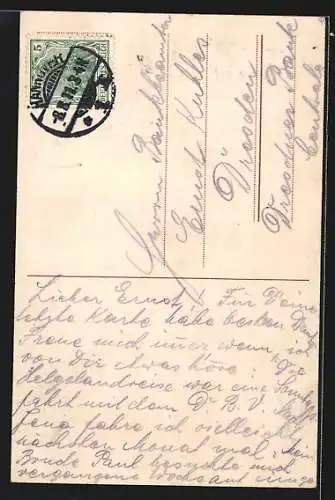 5
Herrn Bankbeamter
Ernst
Dresden
Dresdner Bank
Centrale
Lieber Ernst! Für Deine
letzte Karte habe besten Dank
Freue mich immer wenn ich
von Dir etwas höre. Die
Helgolandreise war eine
fahrt mit dem D. B. V. Nach
Jena fahre ich vielleicht
nächsten Monat mal. Mein
Bruder Paul besuchte mich
vergangene Woche auf